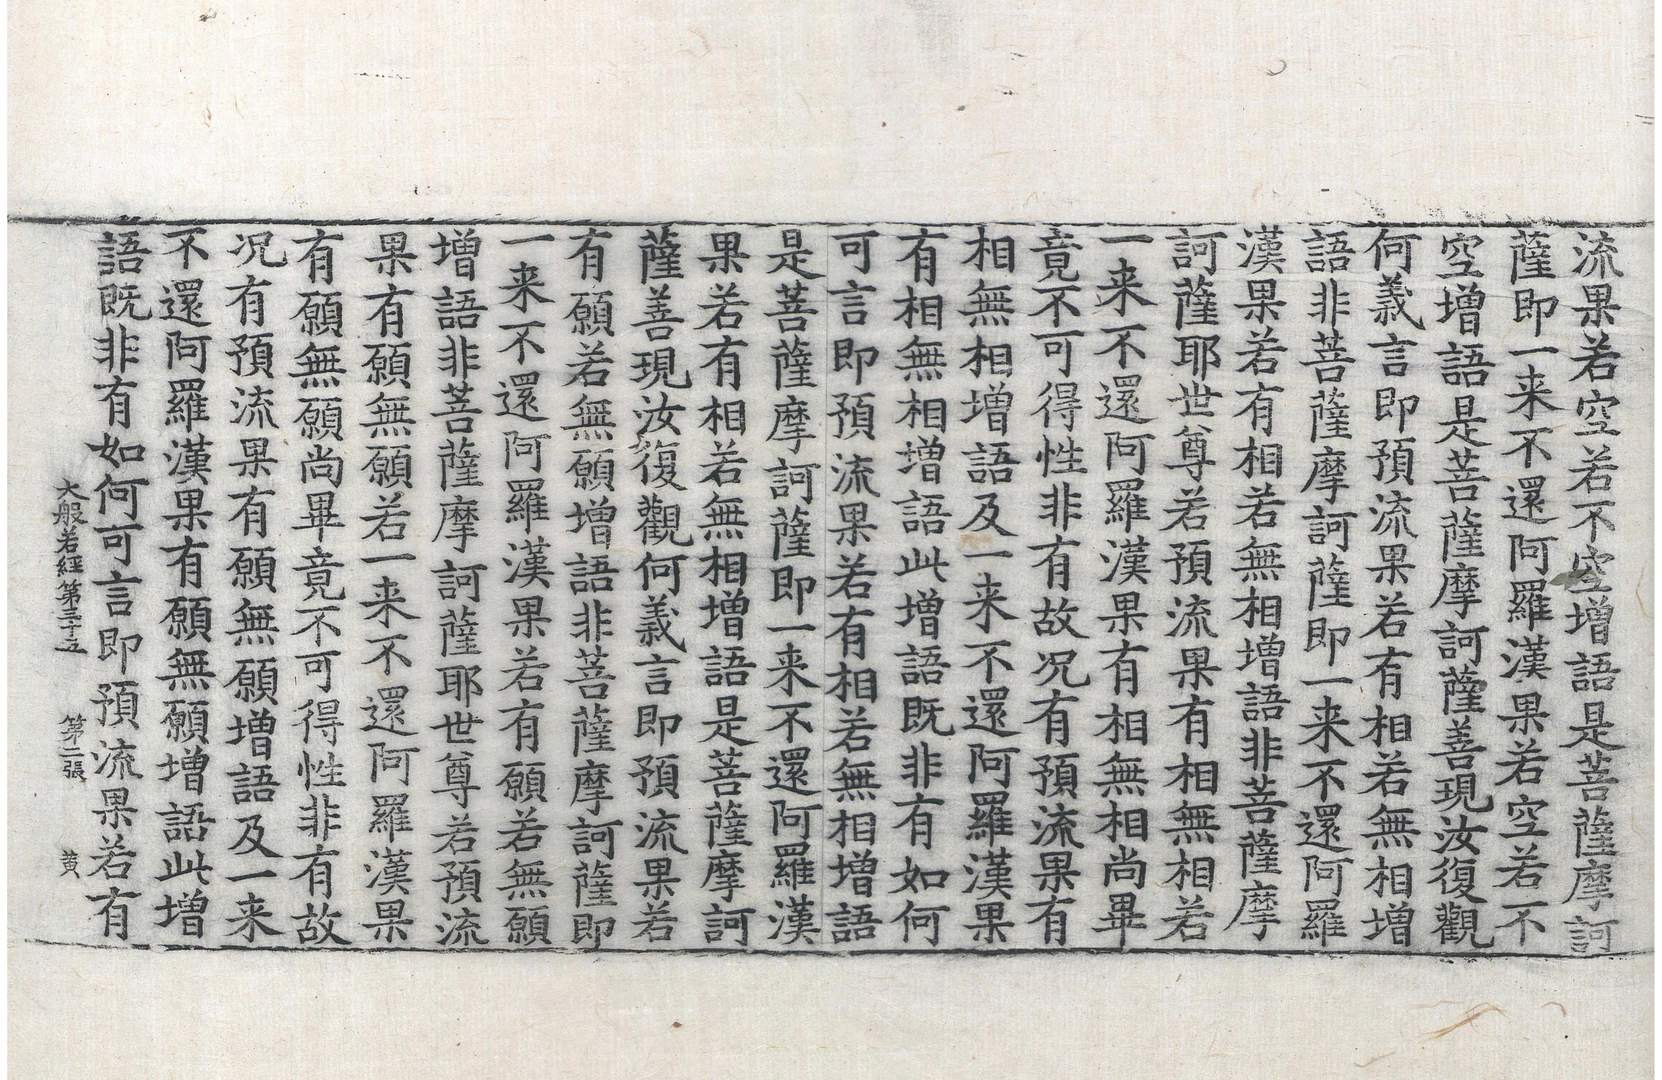 流果若空若不空增語是菩薩摩訶
薩即一来不還阿羅漢果若空若不
空增語是菩薩摩訶薩善現汝復觀
何義言即預流果若有相若無相增
語非菩薩摩訶薩即一来不還阿羅
漢果若有相若無相增語非菩薩摩
訶薩耶世尊若預流果有相無相若
一来不還阿羅漢果有相無相尚畢
竟不可得性非有故况有預流果有
相無相增語及一来不還阿羅漢果
有相無相增語此增語既非有如何
可言即預流果若有相若無相增語
是菩薩摩訶薩即一来不還阿羅漢
果若有相若無相增語是菩薩摩訶
薩善現汝復觀何義言即預流果若
有願若無願增語非菩薩摩訶薩即
一来不還阿羅漢果若有願若無願
增語非菩薩摩訶薩耶世尊若預流
果有願無願若一来不還阿羅漢果
有願無願尚畢竟不可得性非有故
况有預流果有願無願增語及一来
不還阿羅漢果有願無願增語此增
語既非有如何可言即預流果若有
大般若經第三十五 第二張 黄